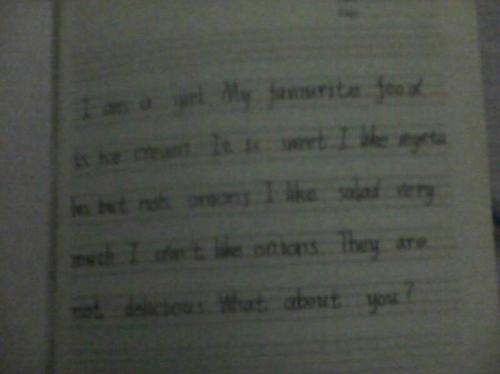 I am a girl. My favourite food
is ice cream. It is sweet I like vegeta
les but not onions I like salad very
much I don't like onions. They are
not delicious. What about you?